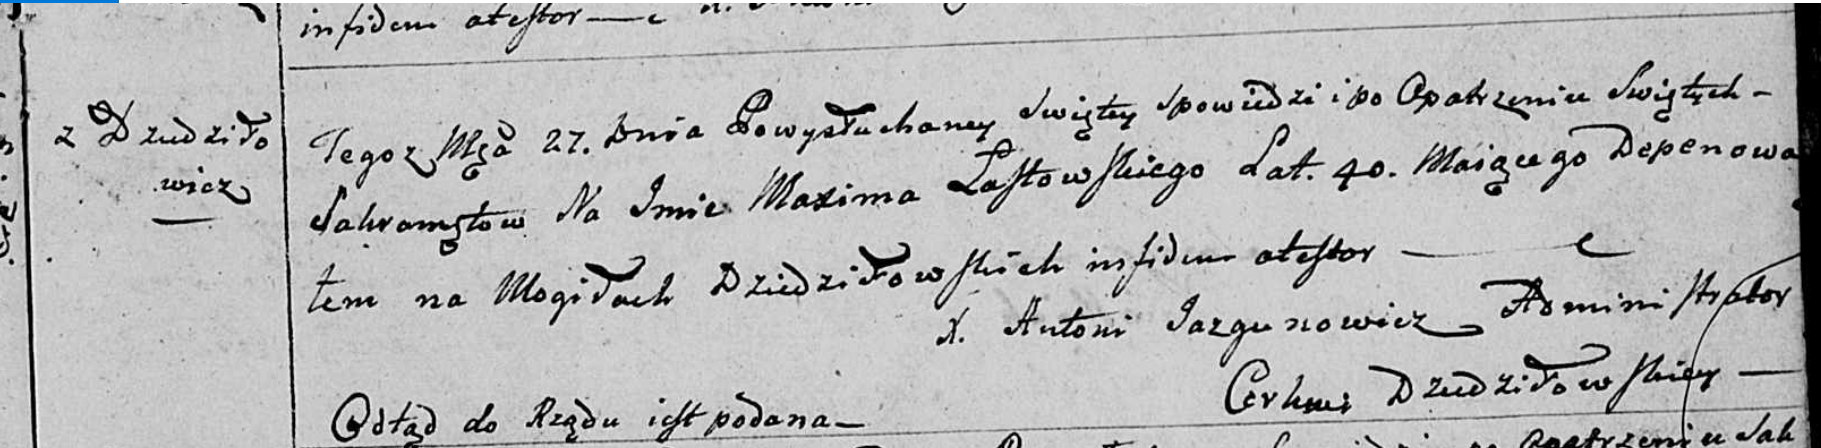 infidem atestor
z Dziedziło
wicz
Tegoz Mga 27. Dnia Powysłuchaney Swiętey Spowiedzi i po Opatrzeniu Swiętych
Sakramętow Na Imie Maxima Łastowskiego Lat. 40. Maiącego Depenowa
tem na Mogiłach Dziedziłowskich infidem atestor
X. Antoni Jazgunowicz Administrator
Cerkwi Dziedziłowskiey
Odtąd do Rządu iest podana
Opatrzeniu Sak